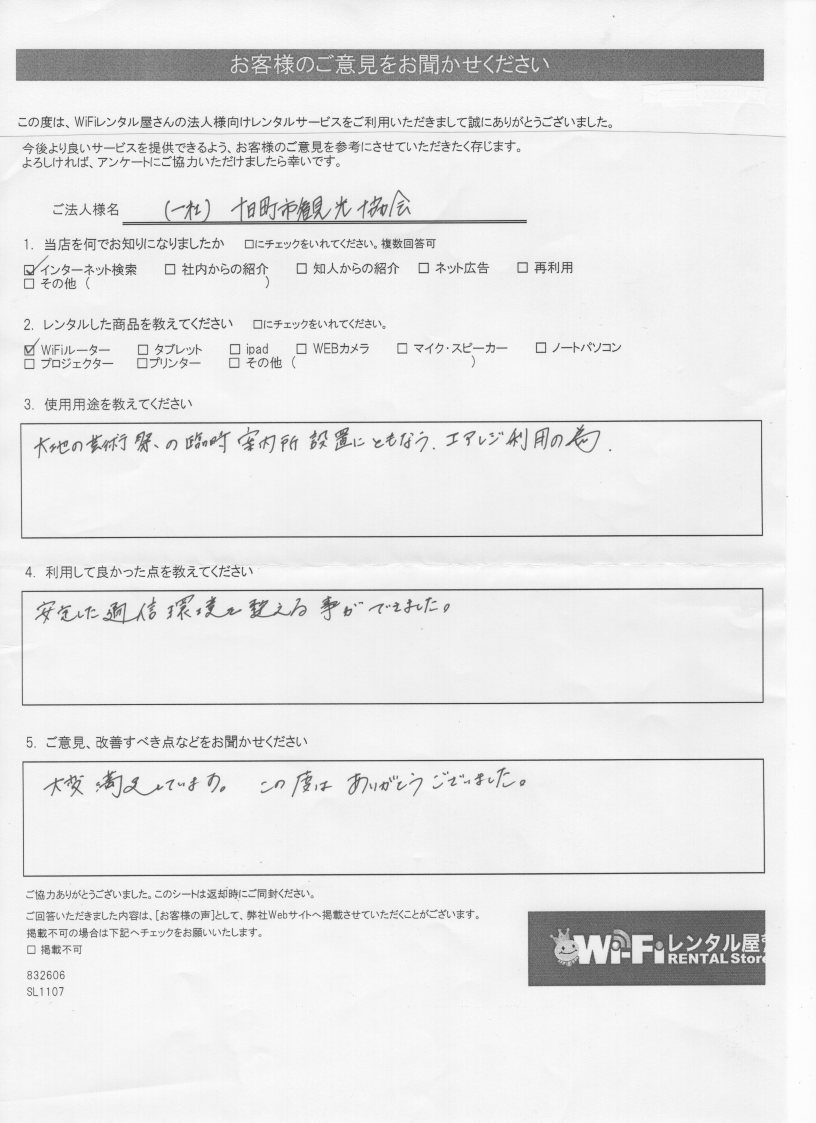 お客様のご意見をお聞かせください
この度は、WiFiレンタル屋さんの法人様向けレンタルサービスをご利用いただきまして誠にありがとうございました。
今後より良いサービスを提供できるよう、お客様のご意見を参考にさせていただきたく存じます。
よろしければ、アンケートにご協力いただけましたら幸いです。
ご法人様名 (一社) 十日町市観光協会
1. 当店を何でお知りになりましたか □にチェックをいれてください。複数回答可
☑ インターネット検索 □ 社内からの紹介 □ 知人からの紹介 □ ネット広告 □ 再利用
□ その他 ( )
2. レンタルした商品を教えてください □にチェックをいれてください。
☑ WiFiルーター □ タブレット □ ipad □ WEBカメラ □ マイク・スピーカー □ ノートパソコン
□ プロジェクター □プリンター □ その他 ( )
3. 使用用途を教えてください
大地の芸術祭、の臨時案内所設置にともなう、エアレジ利用の為.
4. 利用して良かった点を教えてください
安定した通信環境を整える事ができました。
5. ご意見、改善すべき点などをお聞かせください
大変満足しています。 この度はありがとうございました。
ご協力ありがとうございました。このシートは返却時にご同封ください。
ご回答いただきました内容は、[お客様の声]として、弊社Webサイトへ掲載させていただくことがございます。
掲載不可の場合は下記へチェックをお願いいたします。
□ 掲載不可
Wi-Fiレンタル屋
RENTAL Store
832606
SL1107